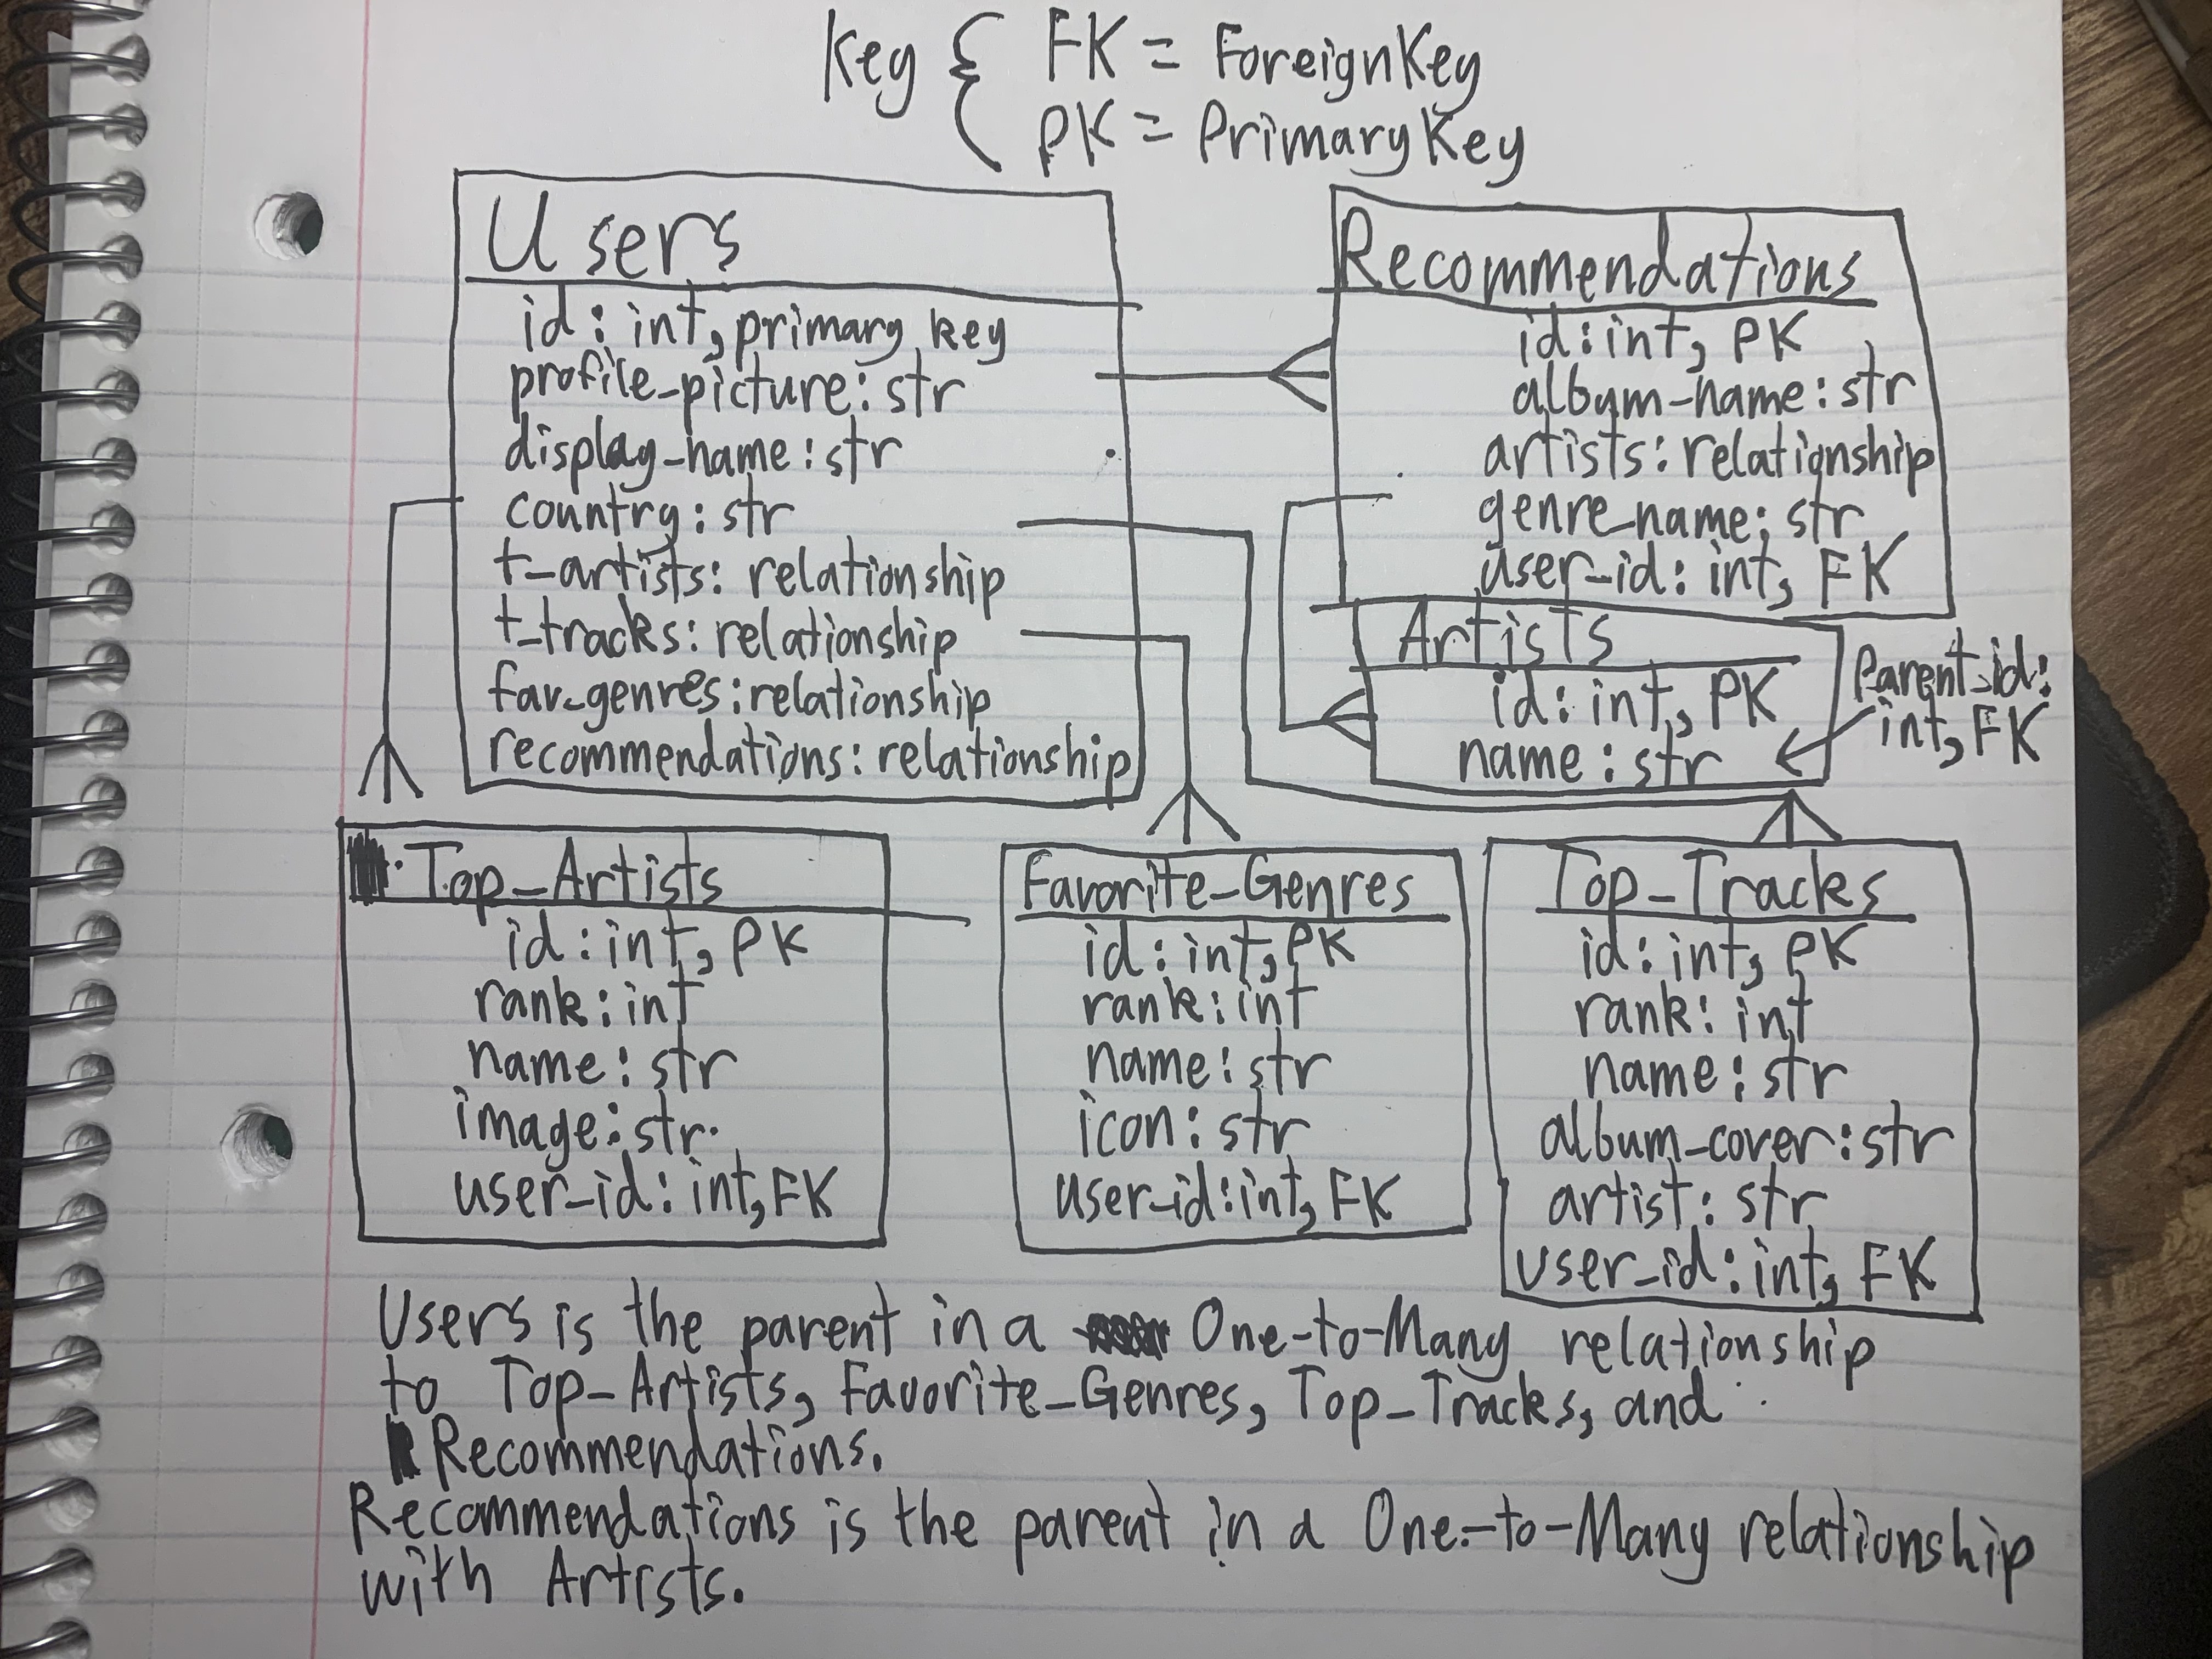 Key { FK = ForeignKey
PK = PrimaryKey
Users
id: int, primary key
profile_picture: str
display_name: str
country: str
t_artists: relationship
t_tracks: relationship
fav_genres: relationship
recommendations: relationship
Recommendations
id: int, PK
album_name: str
artists: relationship
genre_name: str
user_id: int, FK
Artists
id: int, PK
name: str
Parent_id:
int, FK
Top_Artists
id: int, PK
rank: int
name: str
image: str.
user_id: int, FK
Favorite_Genres
id: int, PK
rank: int
name: str
icon: str
user_id: int, FK
Top_Tracks
id: int, PK
rank: int
name: str
album_cover: str
artist: str
user_id: int, FK
Users is the parent in a One-to-Many relationship
to Top_Artists, Favorite_Genres, Top_Tracks, and
Recommendations.
Recommendations is the parent in a One-to-Many relationship
with Artists.